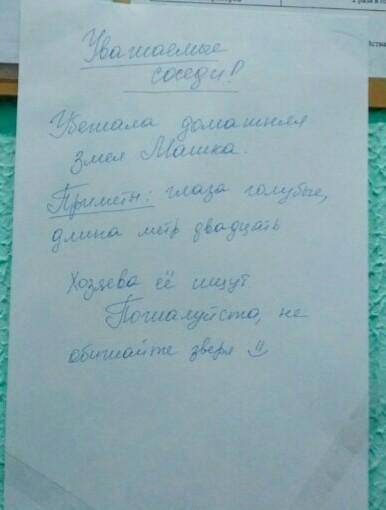 Уважаемые
соседи!
Убежала домашняя
змея Машка.
Приметы: глаза голубые,
длина метр двадцать
Хозяева её ищут
Пожалуйста, не
обижайте зверя